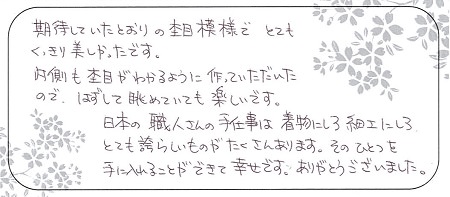 期待していたとおりの杢目模様で とても
くっきり美しかったです。
内側も杢目がわかるように作っていただいた
ので、はずして眺めていても楽しいです。
日本の職人さんの手仕事は着物にしろ細工にしろ
とても誇らしいものがたくさんあります。そのひとつを
手に入れることができて幸せです。ありがとうございました。